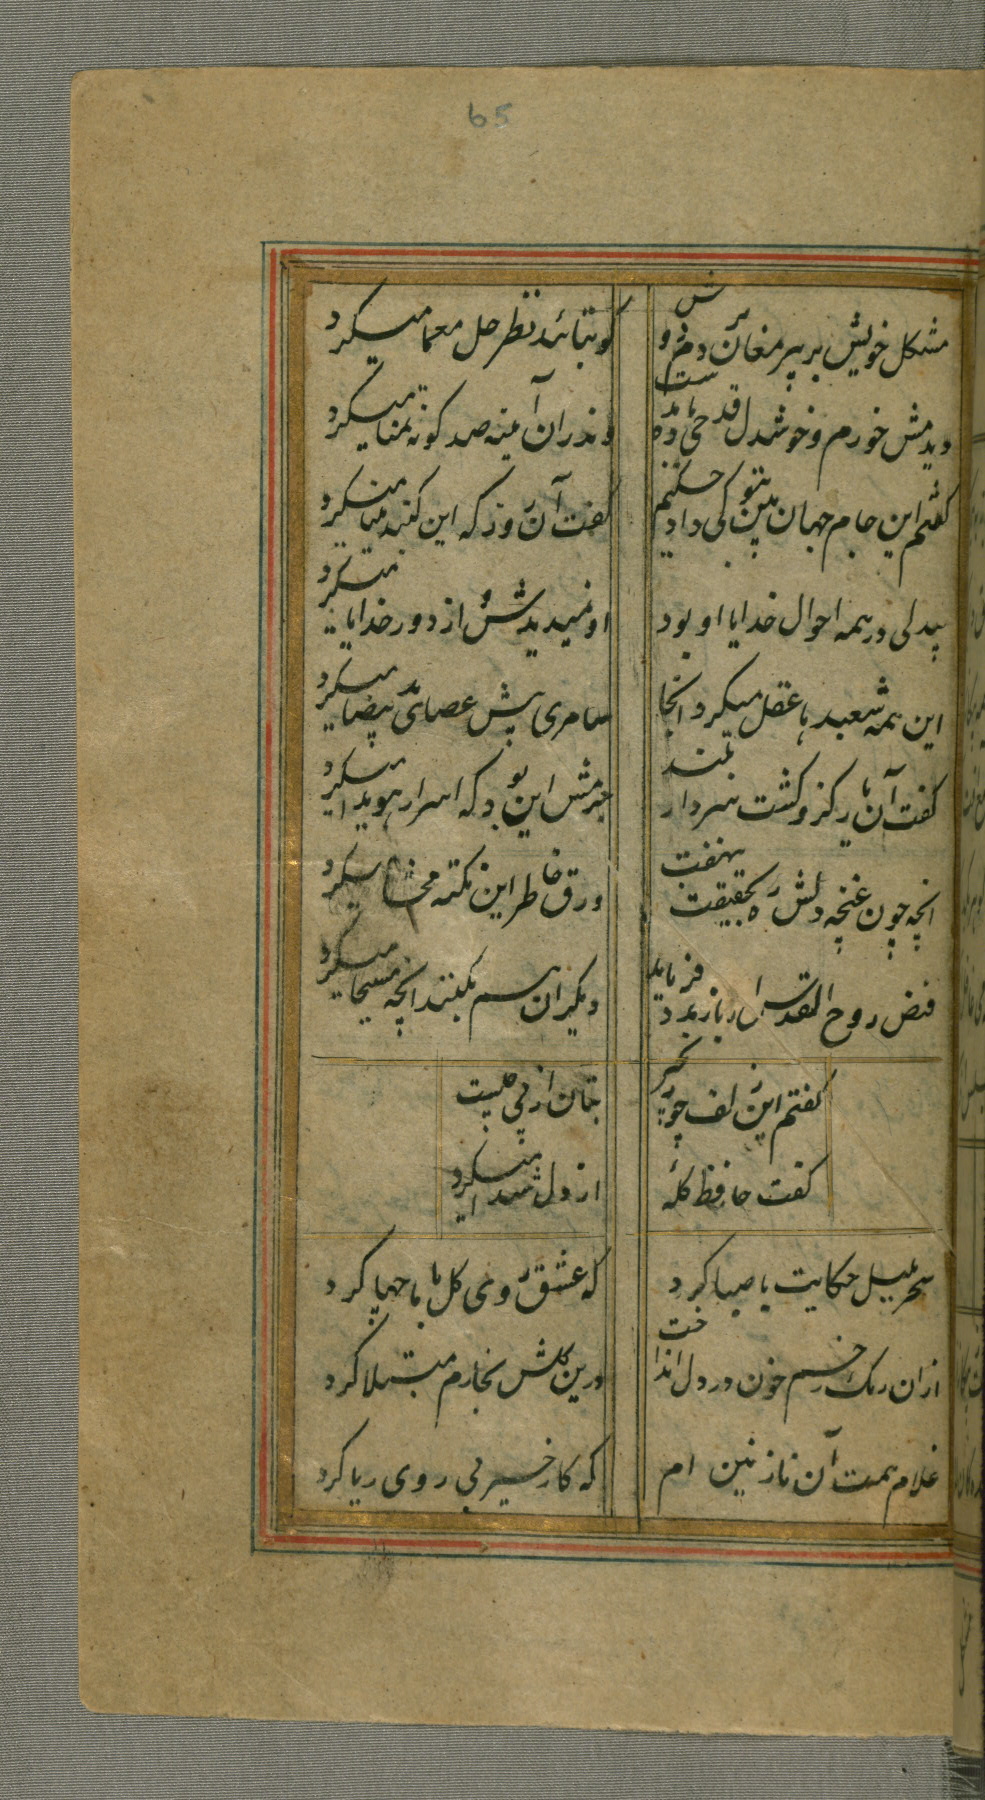 65
مشکل خویش بر پیر مغان بردم دوش
کو بتائید نظر حل معما میکرد
دیدمش خورم و خوشدل قدحی باده بدست
وندران آینه صد کونه تمنا میکرد
کفتم این جام جهان بین بتو کی داد حکیم
کفت آن روز که این کنبد مینا میکرد
بیدلی در همه احوال خدایا او بود
او نمیدیدش از دور خدایا میکرد
این همه شعبدها عقل میکرد انجا
سامری پیش عصای بیضا میکرد
کفت آن یار کزو کشت سر دار بلند
جرمش این بود که اسرار هویدا میکرد
انچه چون غنچه دلش ره حقیقت بنهفت
ورق خاطر این نکته محشا میکرد
فیض روح القدس ار باز مدد فرماید
دیکران هم بکنند انچه مسیحا میکرد
کفتم این زلف چو زنجیر بتان از پی چیست
کفت حافظ کلهٔ از دل شیدا میکرد
سحر بلبل حکایت با صبا کرد
که عشق روی کل با ما چها کرد
ازان رنک رخم خون در دل انداخت
درین کلشن بخارم مبتلا کرد
غلام همت آن نازنین ام
که کار خیر بی روی ریا کرد